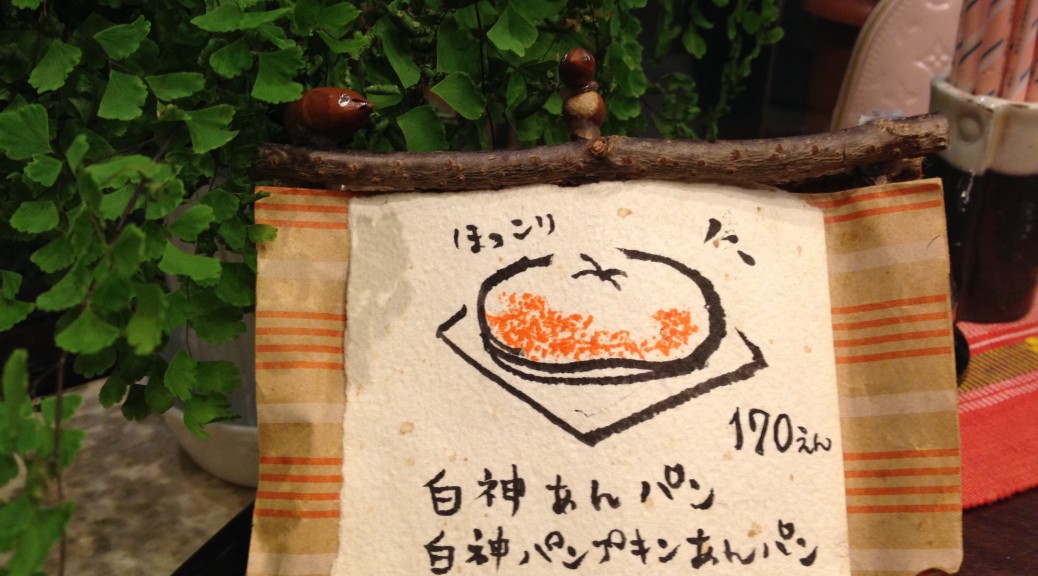 ほっこり
170えん
白神あんパン
白神パンプキンあんパン